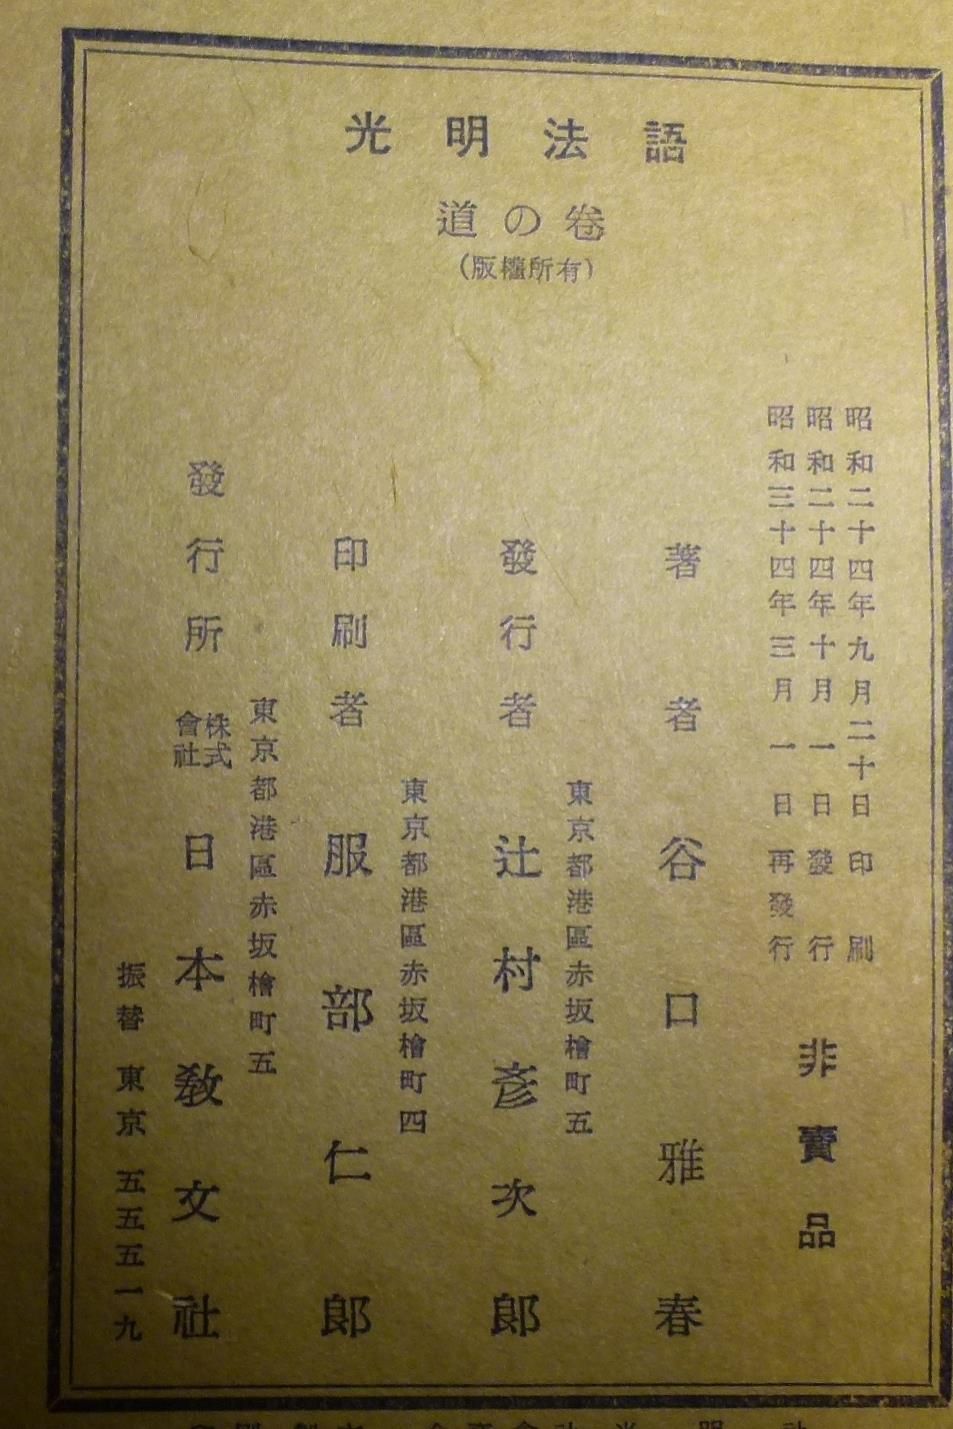 光明法語
道の卷
(版權所有)
昭和二十四年九月二十日印刷
昭和二十四年十月一日發行
昭和三十四年三月一日再發行
非賣品
著者 谷口雅春
東京都港區赤坂檜町五
發行者 辻村彥次郎
東京都港區赤坂檜町四
印刷者 服部仁郎
東京都港區赤坂檜町五
發行所 株式會社 日本敎文社
振替東京五五五一九